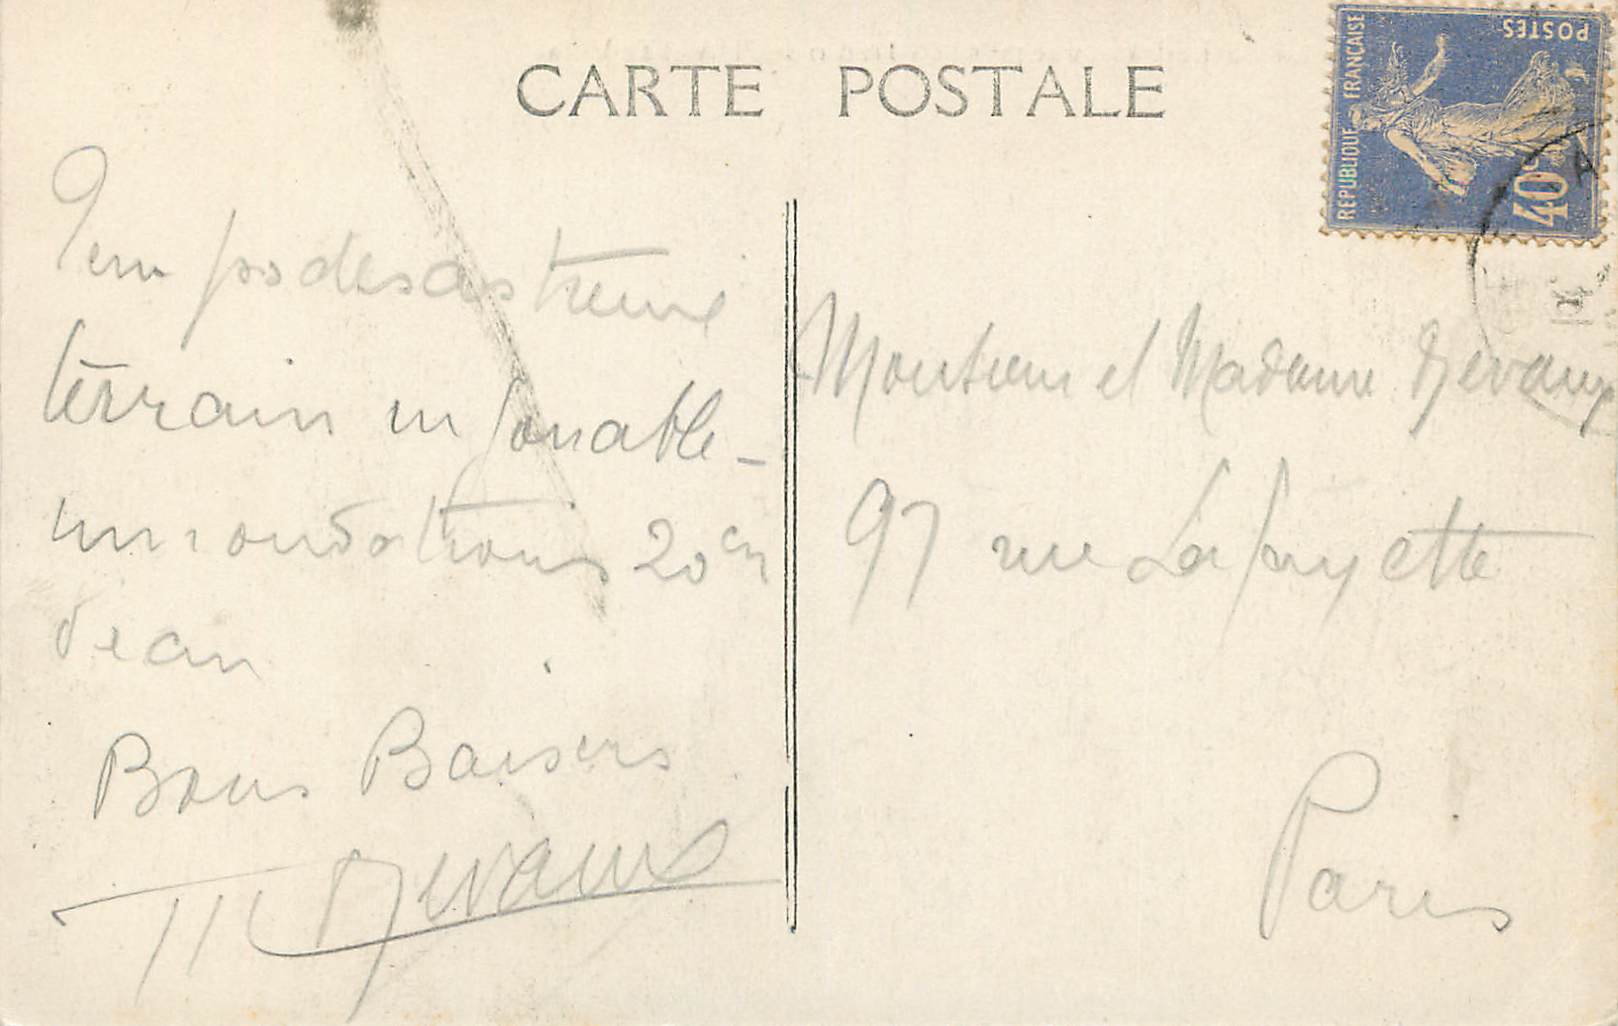 CARTE POSTALE
REPUBLIQUE FRANÇAISE
POSTES
40c
Temps desastreux
terrain infonable -
innondations 20 cm
d'eau
Bons Baisers
Monsieur et Madame
97 rue Lafayette
Paris